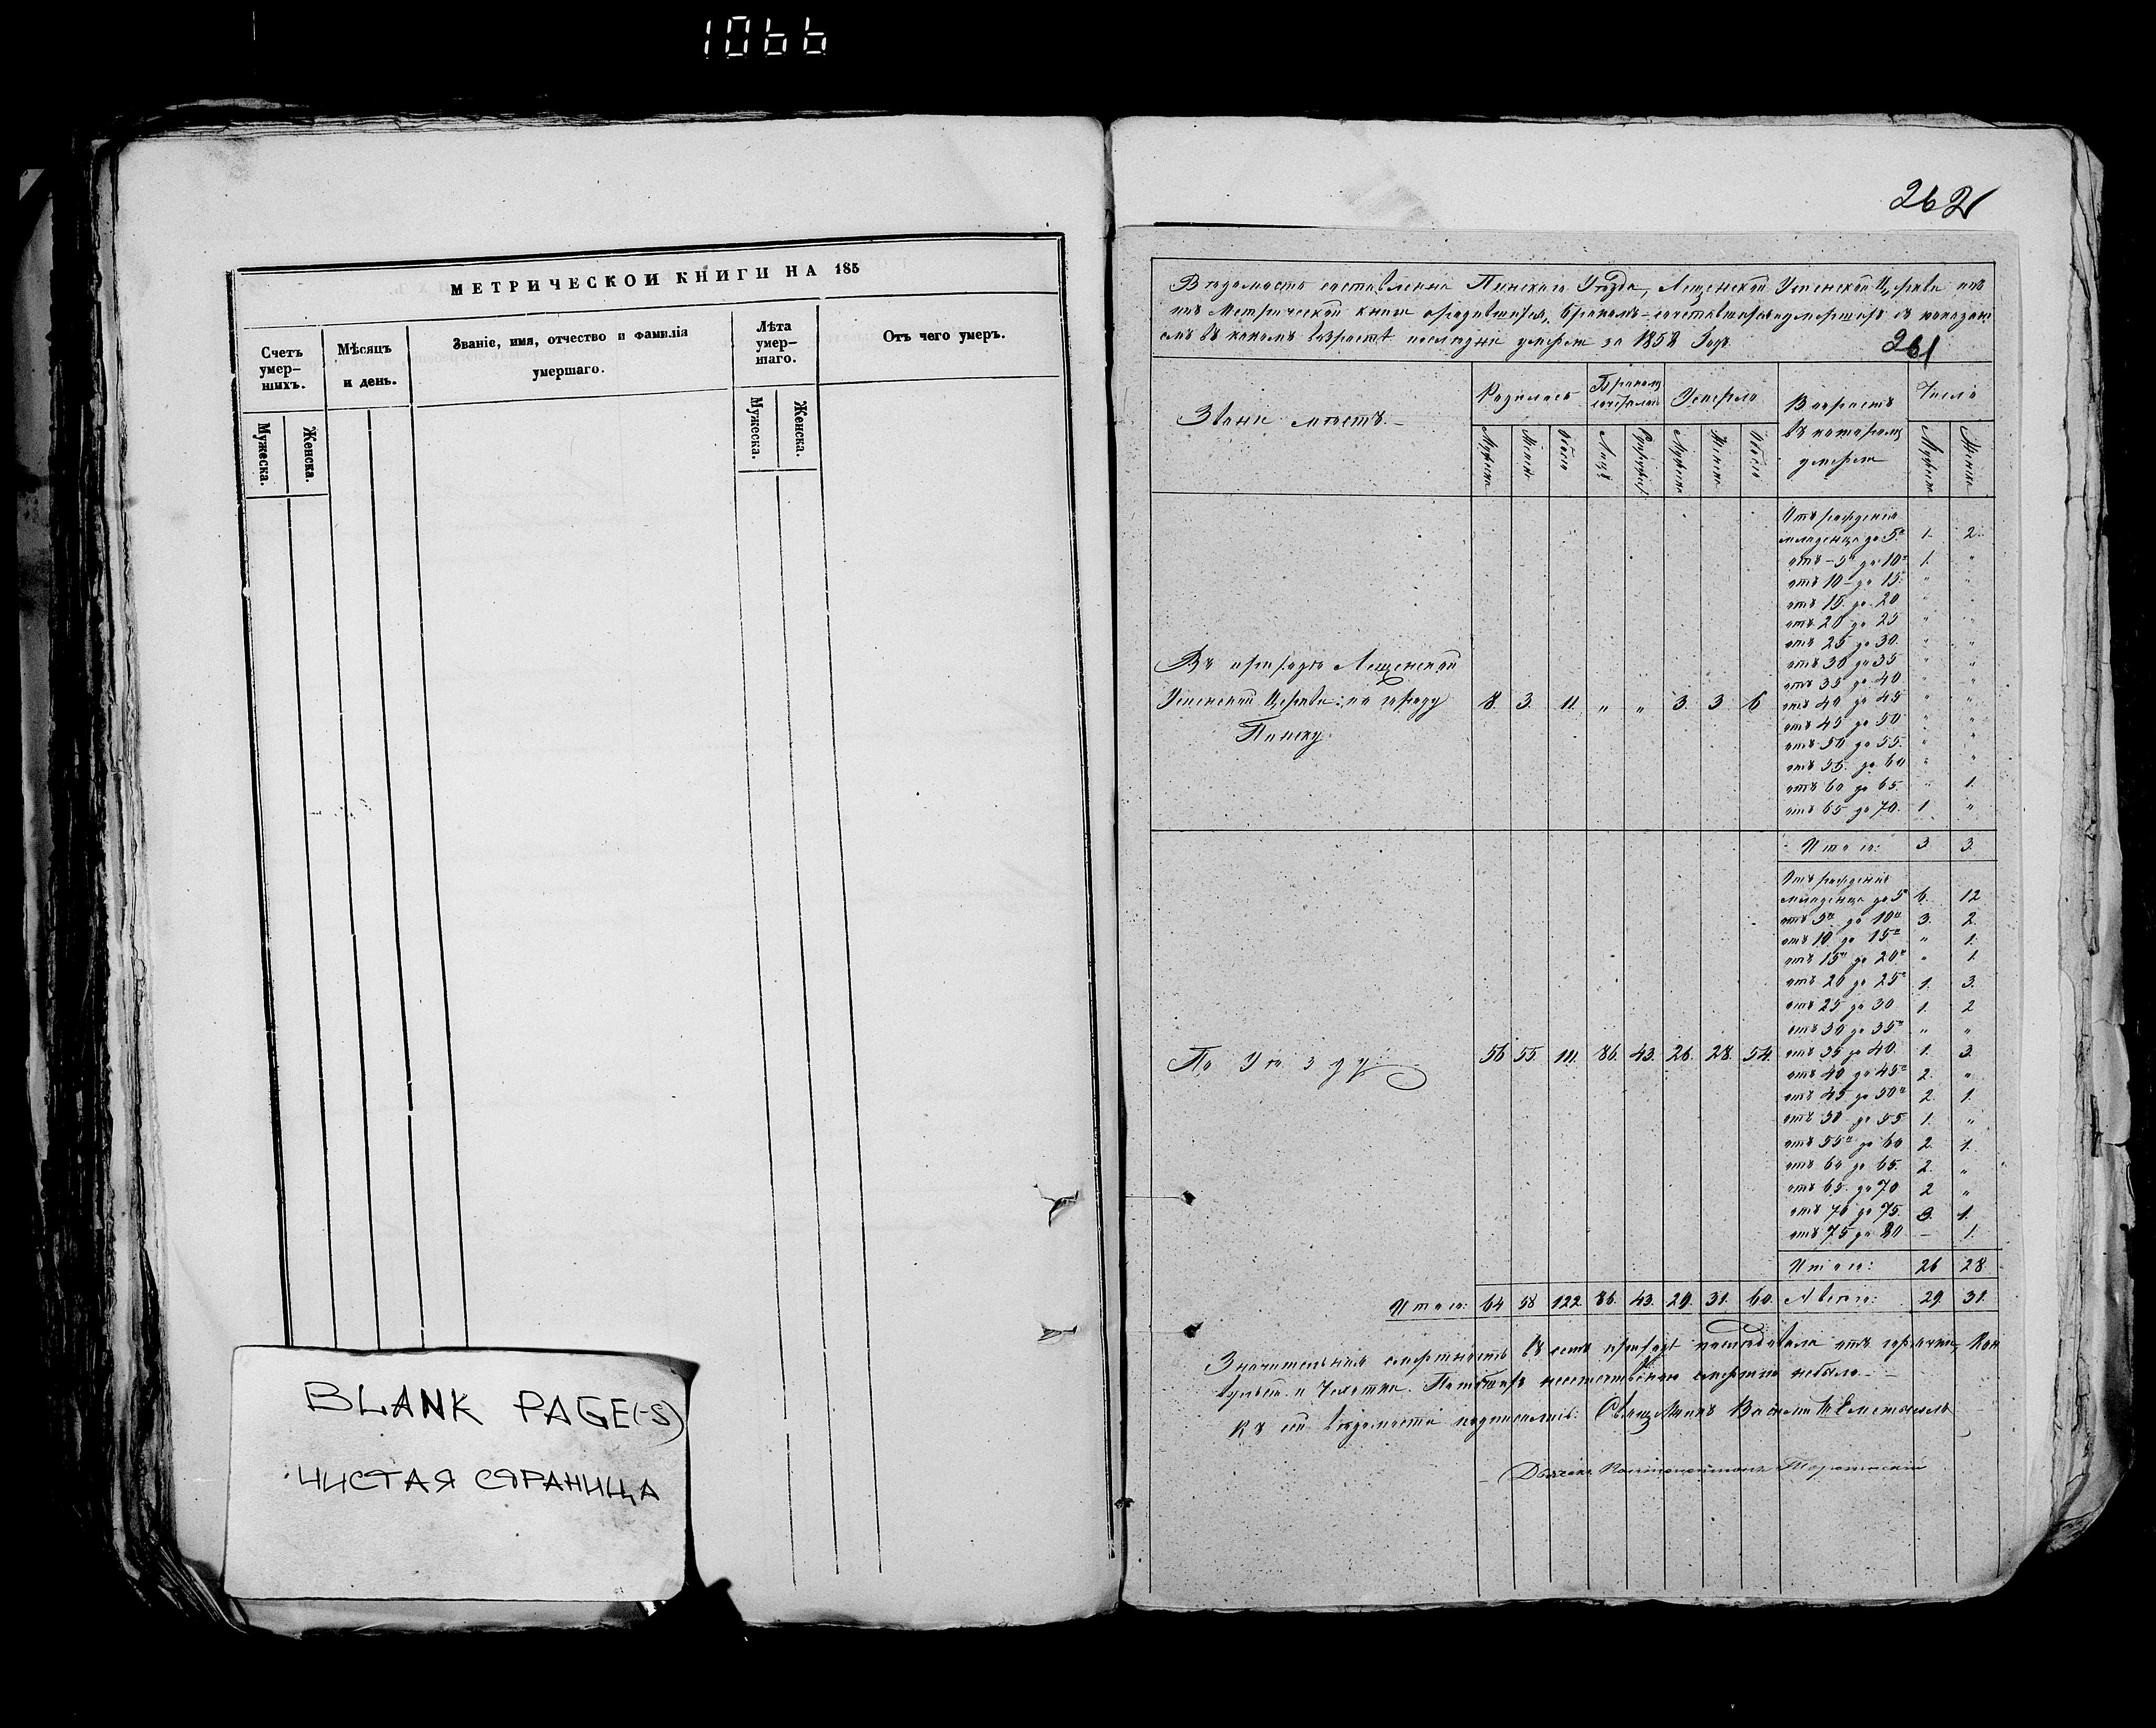 1066
МЕТРИЧЕСКОЙ КНИГИ НА 185
Счетъ умер-шихъ.
Мѣсяцъ и день.
Званіе, имя, отчество и фамилія умершаго.
Лѣта умер-шаго.
Отъ чего умеръ.
Мужеска.
Женска.
Мужеска.
Женска.
BLANK PAGE(-S)
ЧИСТАЯ СТРАНИЦА
262
Вѣдомость составленна Пинскаго Уѣзда, Лещенской Успенской Церкви
изъ Метрической книги о родившихся, бракомъ-сочетавшихся и умершихъ съ показані
емъ въ какомъ возрастѣ послѣдни умерли за 1858 Годъ
261
Звани мѣстъ.
Родилось
Бракомъ
Умерло
Возрастъ
въ которомъ
умерли
Число
Мужеска
Женска
Обоего
Лицъ
Супружес.
Мужеска
Женска
Обоего
Мужеска
Женска
Отъ рожденія
младенца до 5ⁿ 1. 2.
отъ 5ⁿ до 10ⁿ 1. "
отъ 10 до 15. " "
отъ 15. до 20 " "
отъ 20 до 25 " "
отъ 25 до 30. " "
отъ 30 до 35 " "
отъ 35 до 40 " "
отъ 40 до 45 " "
отъ 45 до 50 " "
отъ 50 до 55. " "
отъ 55. до 60 " "
отъ 60 до 65. " 1.
отъ 65 до 70. 1 "
Въ приходѣ Лещенской
Успенской Церкви: по городу
Пинску.
8. 3. 11. " " 3. 3 6
Итого: 3 3.
Отъ рожденія
младенца до 5 6. 12
отъ 5ⁿ до 10ⁿ 3. 2.
отъ 10 до 15ⁿ " 1.
отъ 15ⁿ до 20ⁿ " 1
отъ 20 до 25ⁿ 1. 3.
отъ 25 до 30 1. 2
отъ 30 до 35ⁿ " "
отъ 35 до 40. 1. 3.
отъ 40 до 45ⁿ 2. "
отъ 45 до 50ⁿ 2. 1.
отъ 50 до 55 1. "
отъ 55ⁿ до 60 2. 1.
отъ 60 до 65. 2. "
отъ 65. до 70 2 "
отъ 70 до 75. 3. 1.
отъ 75 до 80 – 1.
По Уѣзду
56 55 111. 86. 43. 26. 28. 54.
Итого: 26 28
Итого: 64 58 122 86. 43. 29. 31. 60. А всего: 29 31.
Значительная смертность въ семъ приходѣ послѣдовала отъ горячки, Кон
вульсіи и Чахотки. Погибшихъ неестественною смертію небыло.
Къ сей вѣдомости подписались: Священникъ Василій
Дьячекъ Константинъ